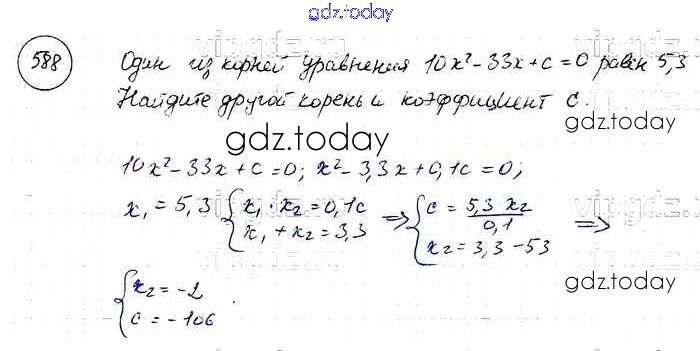 gdz.today
588 Один из корней уравнения 10x² - 33x + c = 0 равен 5,3
Найдите другой корень и коэффициент c.
gdz.today
10x² - 33x + c = 0; x² - 3,3x + 0,1c = 0;
x₁ = 5,3 { x₁ · x₂ = 0,1c ⇒ { c = 5,3 x₂ / 0,1 ⇒
x₁ + x₂ = 3,3 x₂ = 3,3 - 53
gdz.today
{ x₂ = -2
c = -106